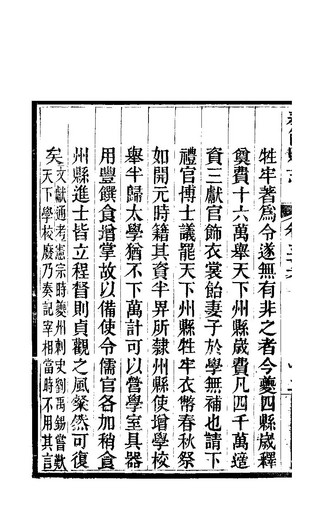 牲牢著爲令遂無有非之者今夔四縣歲釋
奠費十六萬舉天下州縣歲費凡四千萬適
資三獻官飾衣裳飴妻子於學無補也請下
禮官博士議罷天下州縣牲牢衣幣春秋祭
如開元時籍其資半畀所隷州縣使增學校
舉半歸太學猶不下萬計可以營學室具器
用豐饌食增掌故以備使令儒官各加稍食
州縣進士皆立程督則貞觀之風粲然可復
矣文獻通考憲宗時夔州刺史劉禹錫嘗歎
天下學校廢乃奏記宰相當時不用其言